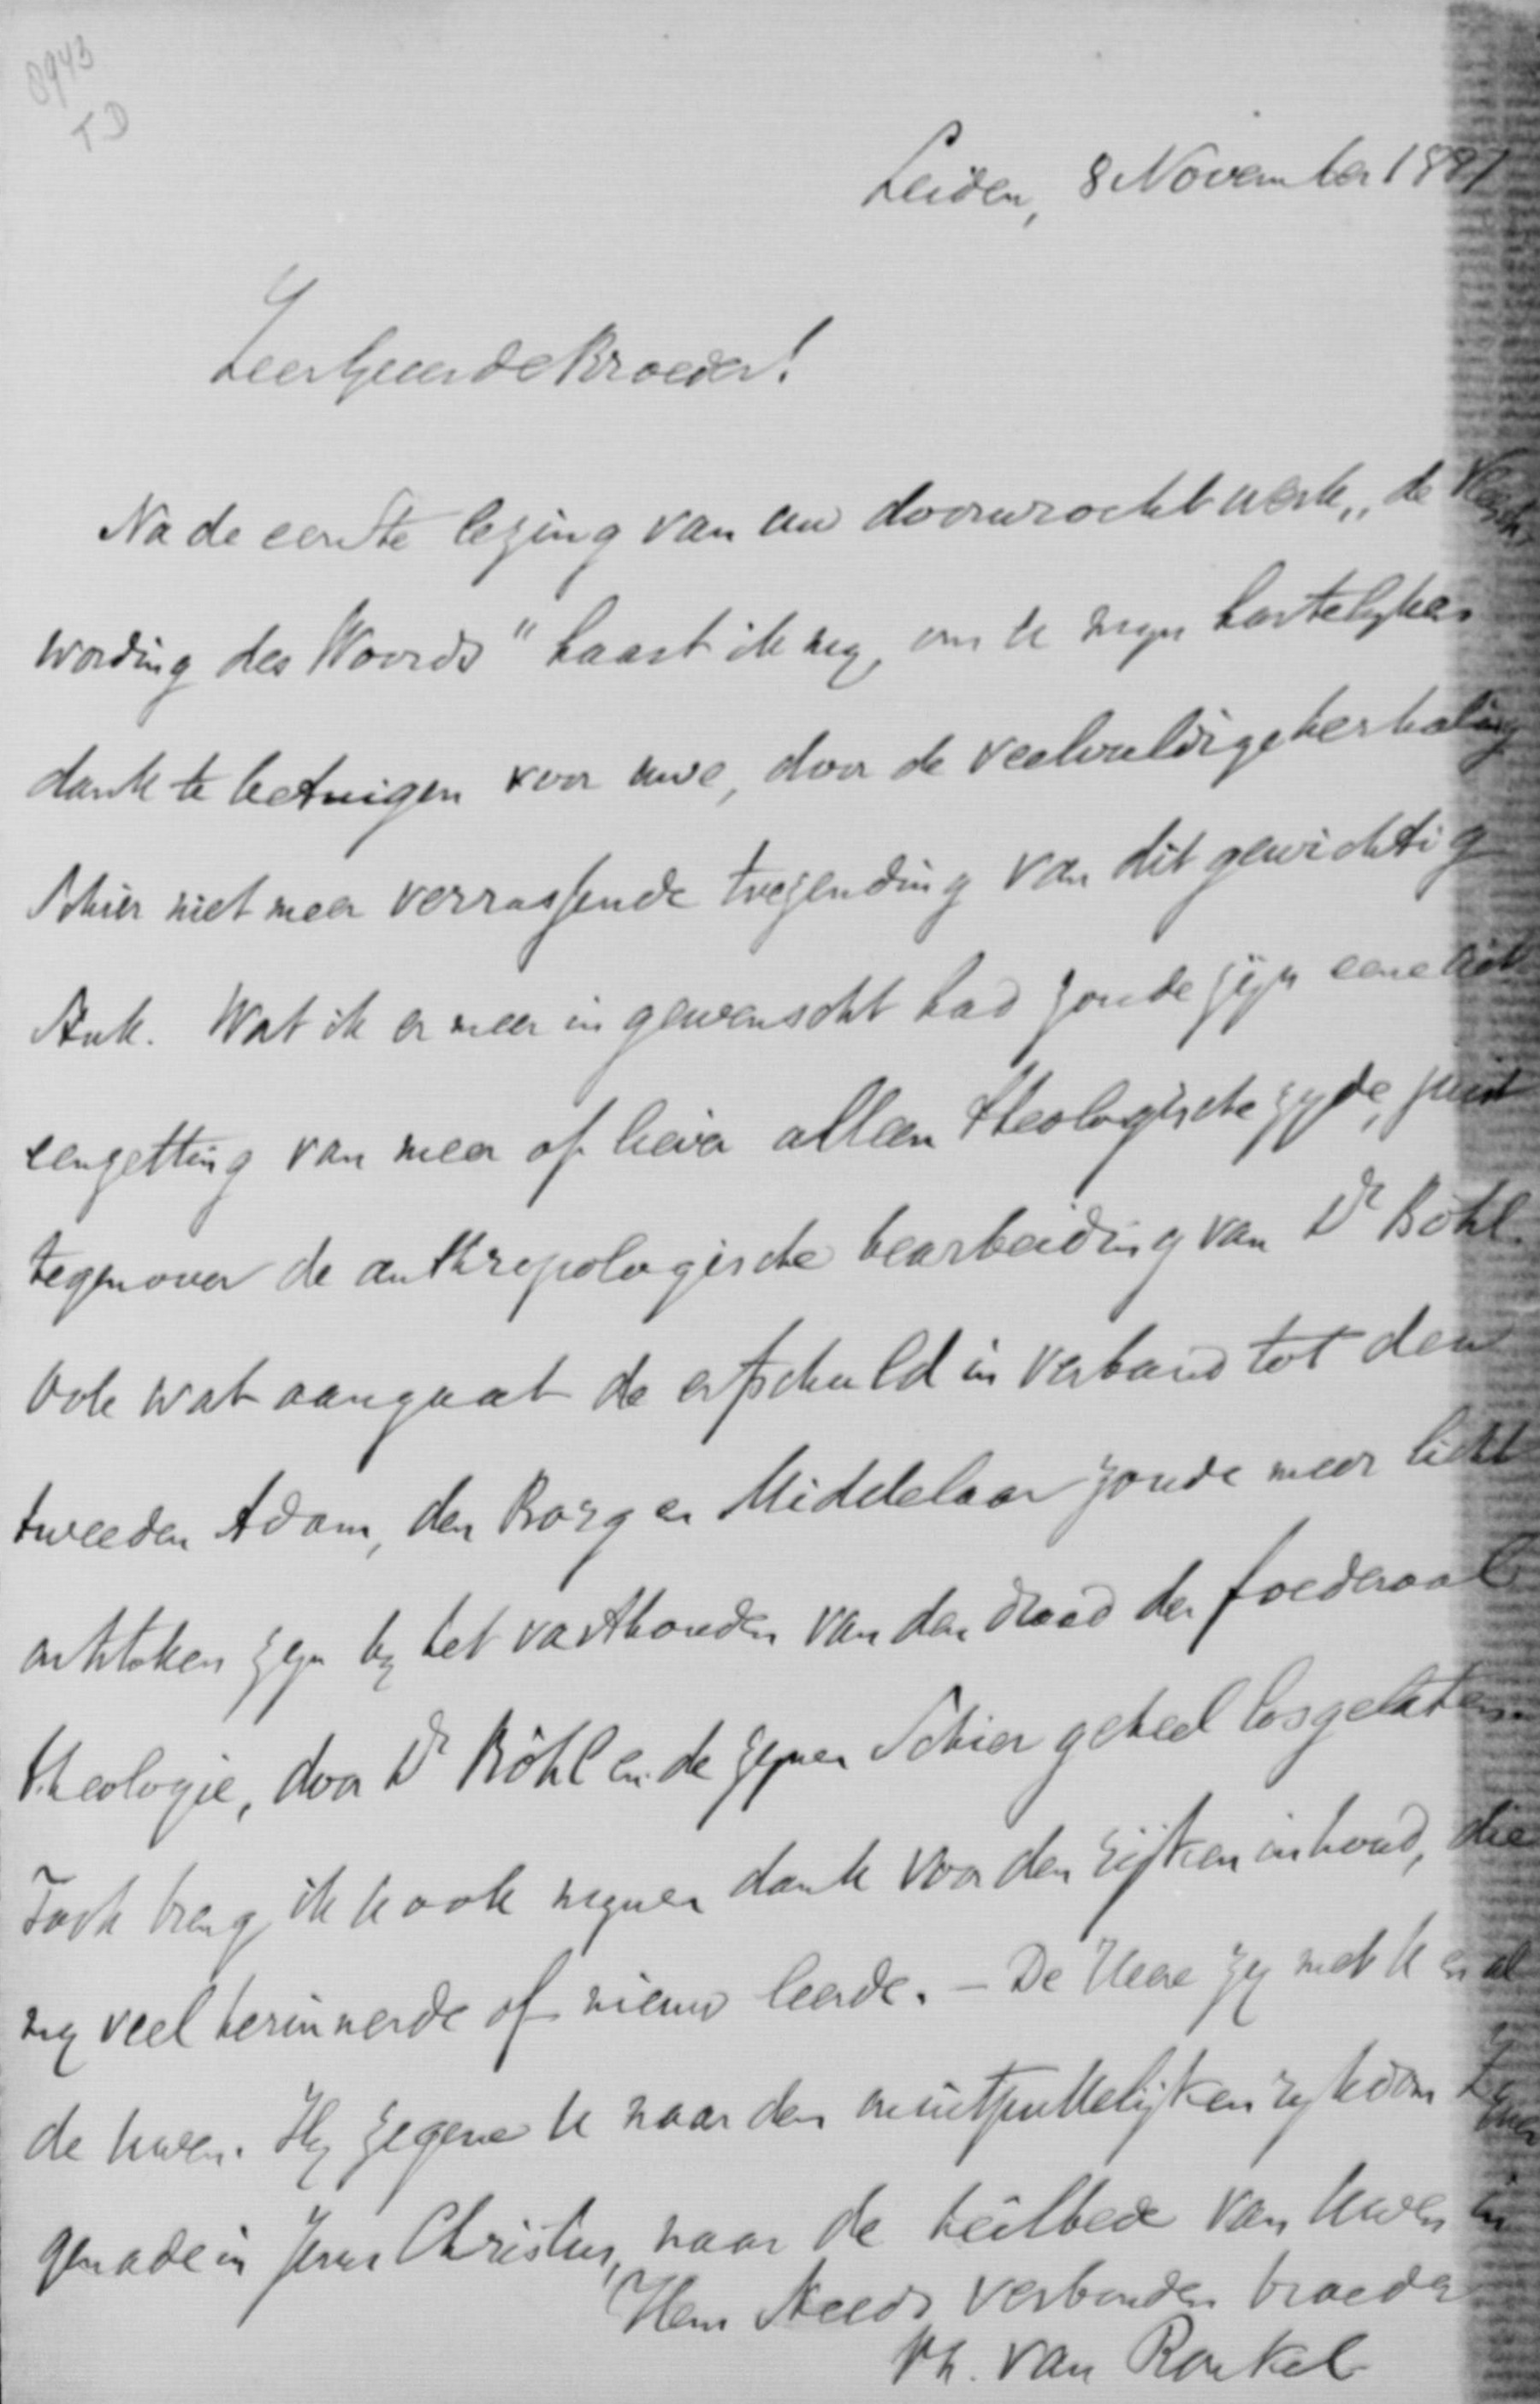 0943
TD
Leiden, 8 November 1887
Zeer Geeerde Broeder!
Na de eerste lezing van uw doorwrocht werk „de Vleesch
wording des Woords" haast ik my, om U myn hartelyken
dank te betuigen voor uwe, door de veelvuldige herhaling
schier niet meer verrassende toezending van dit gewichtig
stuk. Wat ik er meer in gewenscht had zoude zijn eene uit
eenzetting van meer of liever alleen theologische zyde, juist
tegenover de anthropologische bearbeiding van Dr Böhl.
Ook wat aangaat de erfschuld in verband tot den
tweeden Adam, den Borg en Middelaar zoude meer licht
ontstoken zyn by het vasthouden van den draad der foederaal
theologie, door Dr Böhl en de zynen schier geheel losgelaten.
Toch breng ik U ook mynen dank voor den rijken inhoud, die
my veel herinnerde of nieuw leerde. – De Heere zy met U en al
de uwen. Hy zegene U naar den onuitputtelijken rykdom Zyner
genade in Jezus Christus, naar de heilbede van Uwen in
Hem steeds verbonden broeder
Ph. van Ronkel